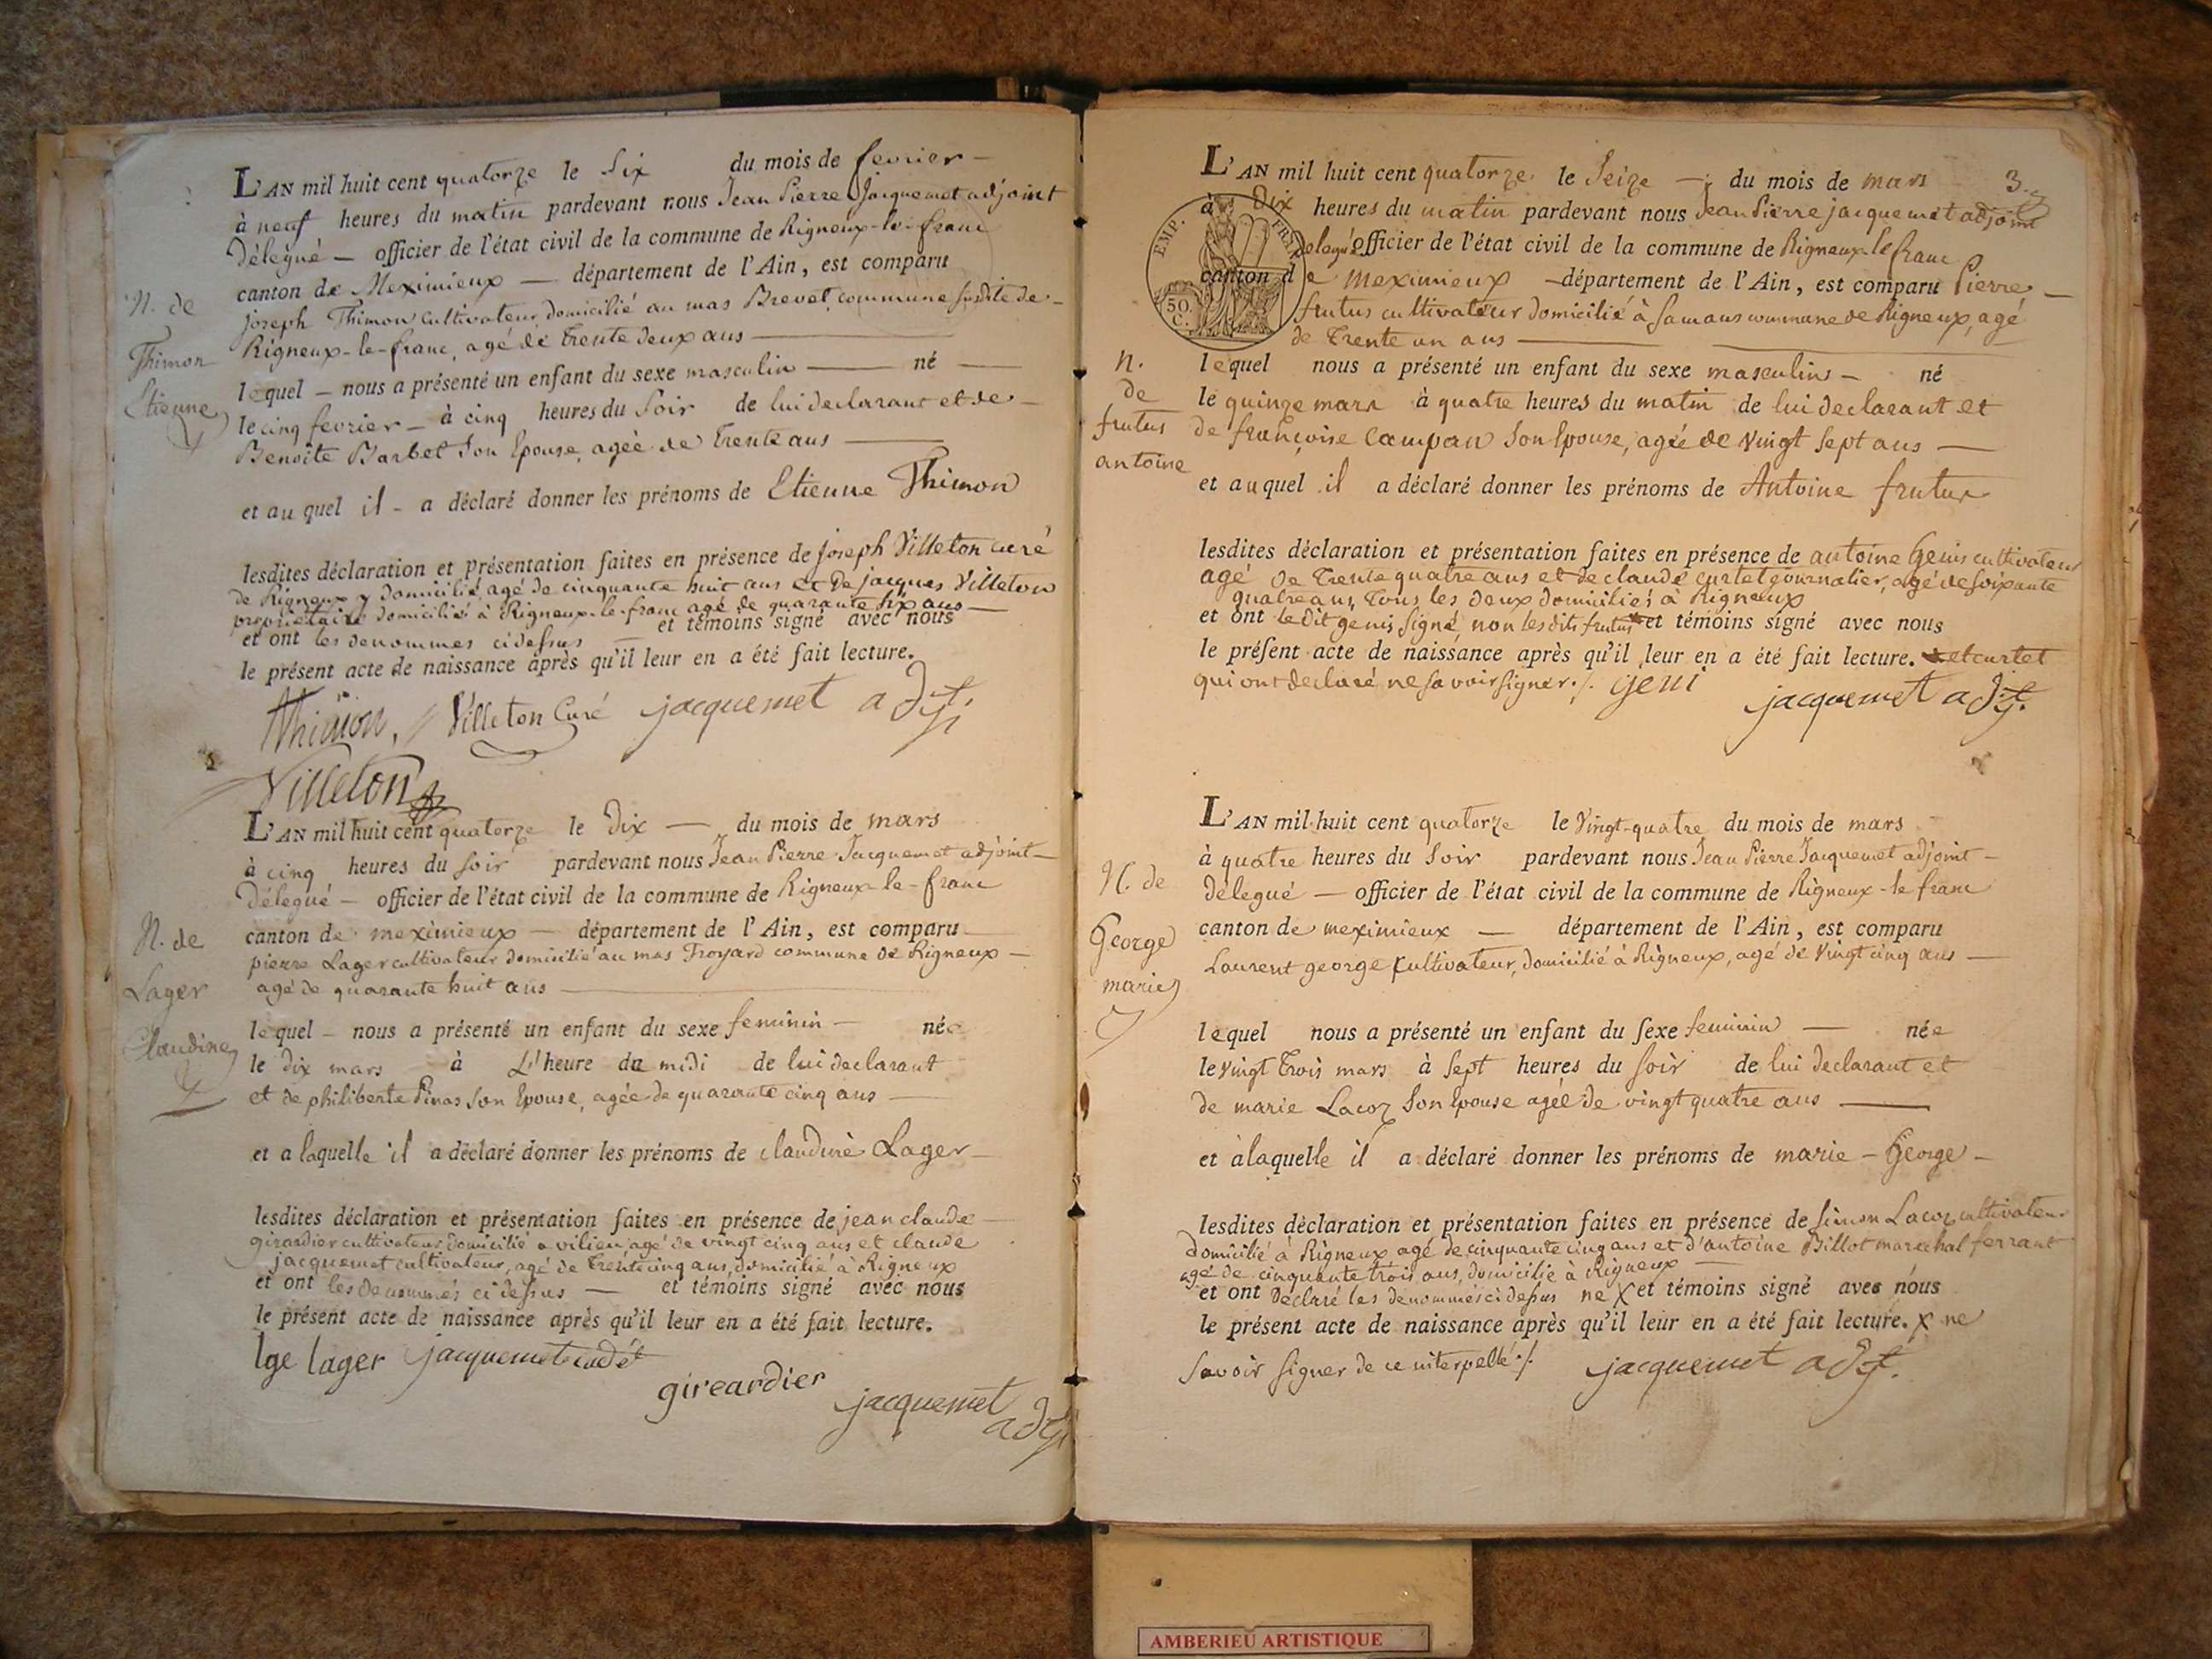 L'AN mil huit cent quatorze le Six du mois de fevrier —
à neuf heures du matin pardevant nous Jean Pierre Jacquemet adjoint
délegué — officier de l'état civil de la commune de Rigneux-le-franc
canton de Meximieux — département de l'Ain, est comparu
joseph Thimon cultivateur, domicilié au mas Brevet, commune susdite de —
Rigneux-le-franc, agé de trente deux ans —
lequel — nous a présenté un enfant du sexe masculin — né —
le cinq fevrier — à cinq heures du soir de lui declarant et de —
Benoite Barbet son Epouse, agée de trente ans —
et au quel il - a déclaré donner les prénoms de Etienne Thimon
lesdites déclaration et présentation faites en présence de joseph Villeton curé
de Rigneux y domicilié, agé de cinquante huit ans et de jacques Villeton
proprietaire domicilié à Rigneux-le-franc agé de quarante six ans —
et ont les denommes ci dessus — et témoins signé avec nous
le présent acte de naissance après qu'il leur en a été fait lecture.
Thimon, Villeton Curé jacquemet adjt
Villeton
N. de
Thimon
Etienne
L'AN mil huit cent quatorze le Dix — du mois de mars
à cinq heures du soir pardevant nous Jean Pierre Jacquemet adjoint —
délegué — officier de l'état civil de la commune de Rigneux-le-franc
canton de meximieux — département de l'Ain, est comparu —
pierre Lager cultivateur domicilié au mas Troyard commune de Rigneux —
agé de quarante huit ans —
lequel — nous a présenté un enfant du sexe feminin — née
le dix mars à L'heure de midi de lui declarant
et de philiberte Pinas son Epouse, agée de quarante cinq ans —
et a laquelle il a déclaré donner les prénoms de claudine Lager —
lesdites déclaration et présentation faites en présence de jean claude —
girardier cultivateur domicilié a vilieu agé de vingt cinq ans et claude
jacquemet cultivateur, agé de trente cinq ans, domicilié à Rigneux
et ont les denommés ci dessus — et témoins signé avec nous
le présent acte de naissance après qu'il leur en a été fait lecture.
lge lager jacquemet cadét
gireardier jacquemet
adjt
N. de
Lager
Claudine
3.
L'AN mil huit cent quatorze le Seize — du mois de mars
à Dix heures du matin pardevant nous Jean Pierre jacquemet adjoint
delegué officier de l'état civil de la commune de Rigneux le franc
canton de meximieux — département de l'Ain, est comparu Pierre —
frutus cultivateur domicilié à Samans commune de Rigneux, agé
de trente un ans —
EMP. FRAN
50
C.
lequel nous a présenté un enfant du sexe masculins — né
le quinze mars à quatre heures du matin de lui declarant et
de françoise campan son Epouse, agée de vingt sept ans —
et auquel il a déclaré donner les prénoms de Antoine frutus
lesdites déclaration et présentation faites en présence de antoine Genis cultivateur
agé de trente quatre ans et de claude curtet journalier, agé de soixante
quatre ans, tous les deux domiciliés à Rigneux
et ont le dit genis signé, non lesdits frutus et témoins signé avec nous
le présent acte de naissance après qu'il leur en a été fait lecture. x et curtet
qui ont declaré ne savoir signer ./. geni jacquemet adjt.
n.
de
frutus
antoine
L'AN mil huit cent quatorze le Vingt-quatre du mois de mars
à quatre heures du soir pardevant nous Jean Pierre Jacquemet adjoint —
délegué — officier de l'état civil de la commune de Rigneux-le franc
canton de meximieux — département de l'Ain, est comparu
Laurent george cultivateur, domicilié à Rigneux, agé de vingt cinq ans —
lequel nous a présenté un enfant du sexe feminin — née
le vingt trois mars à sept heures du soir de lui declarant et
de marie Lacoz son Epouse agée de vingt quatre ans —
et àlaquelle il a déclaré donner les prénoms de marie — George —
lesdites déclaration et présentation faites en présence de simon Lacoz cultivateur
domicilié à Rigneux agé de cinquante cinq ans et d'antoine Billot marechal ferrant
agé de cinquante trois ans, domicilié à Rigneux —
et ont déclaré les denommés ci dessus ne X et témoins signé avec nous
le présent acte de naissance après qu'il leur en a été fait lecture. X ne
savoir signer de ce interpellé ./. jacquemet adjt.
N. de
George
marie
AMBERIEU ARTISTIQUE